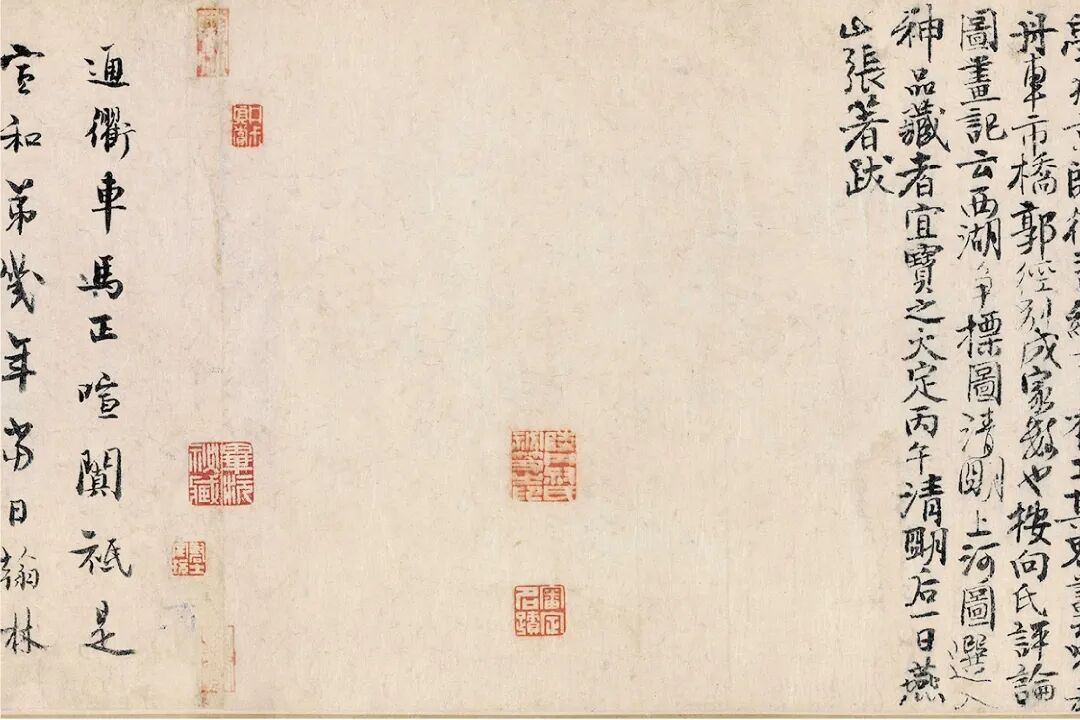 舟車市橋郭徑别成家數也按向氏評論
圖畫記云西湖争標圖清明上河圖選入
神品藏者宜寶之大定丙午清明后一日燕
山張著跋
審定名蹟
畢沅秘藏
通衢車馬正喧闐祗是
宣和第幾年當日翰林